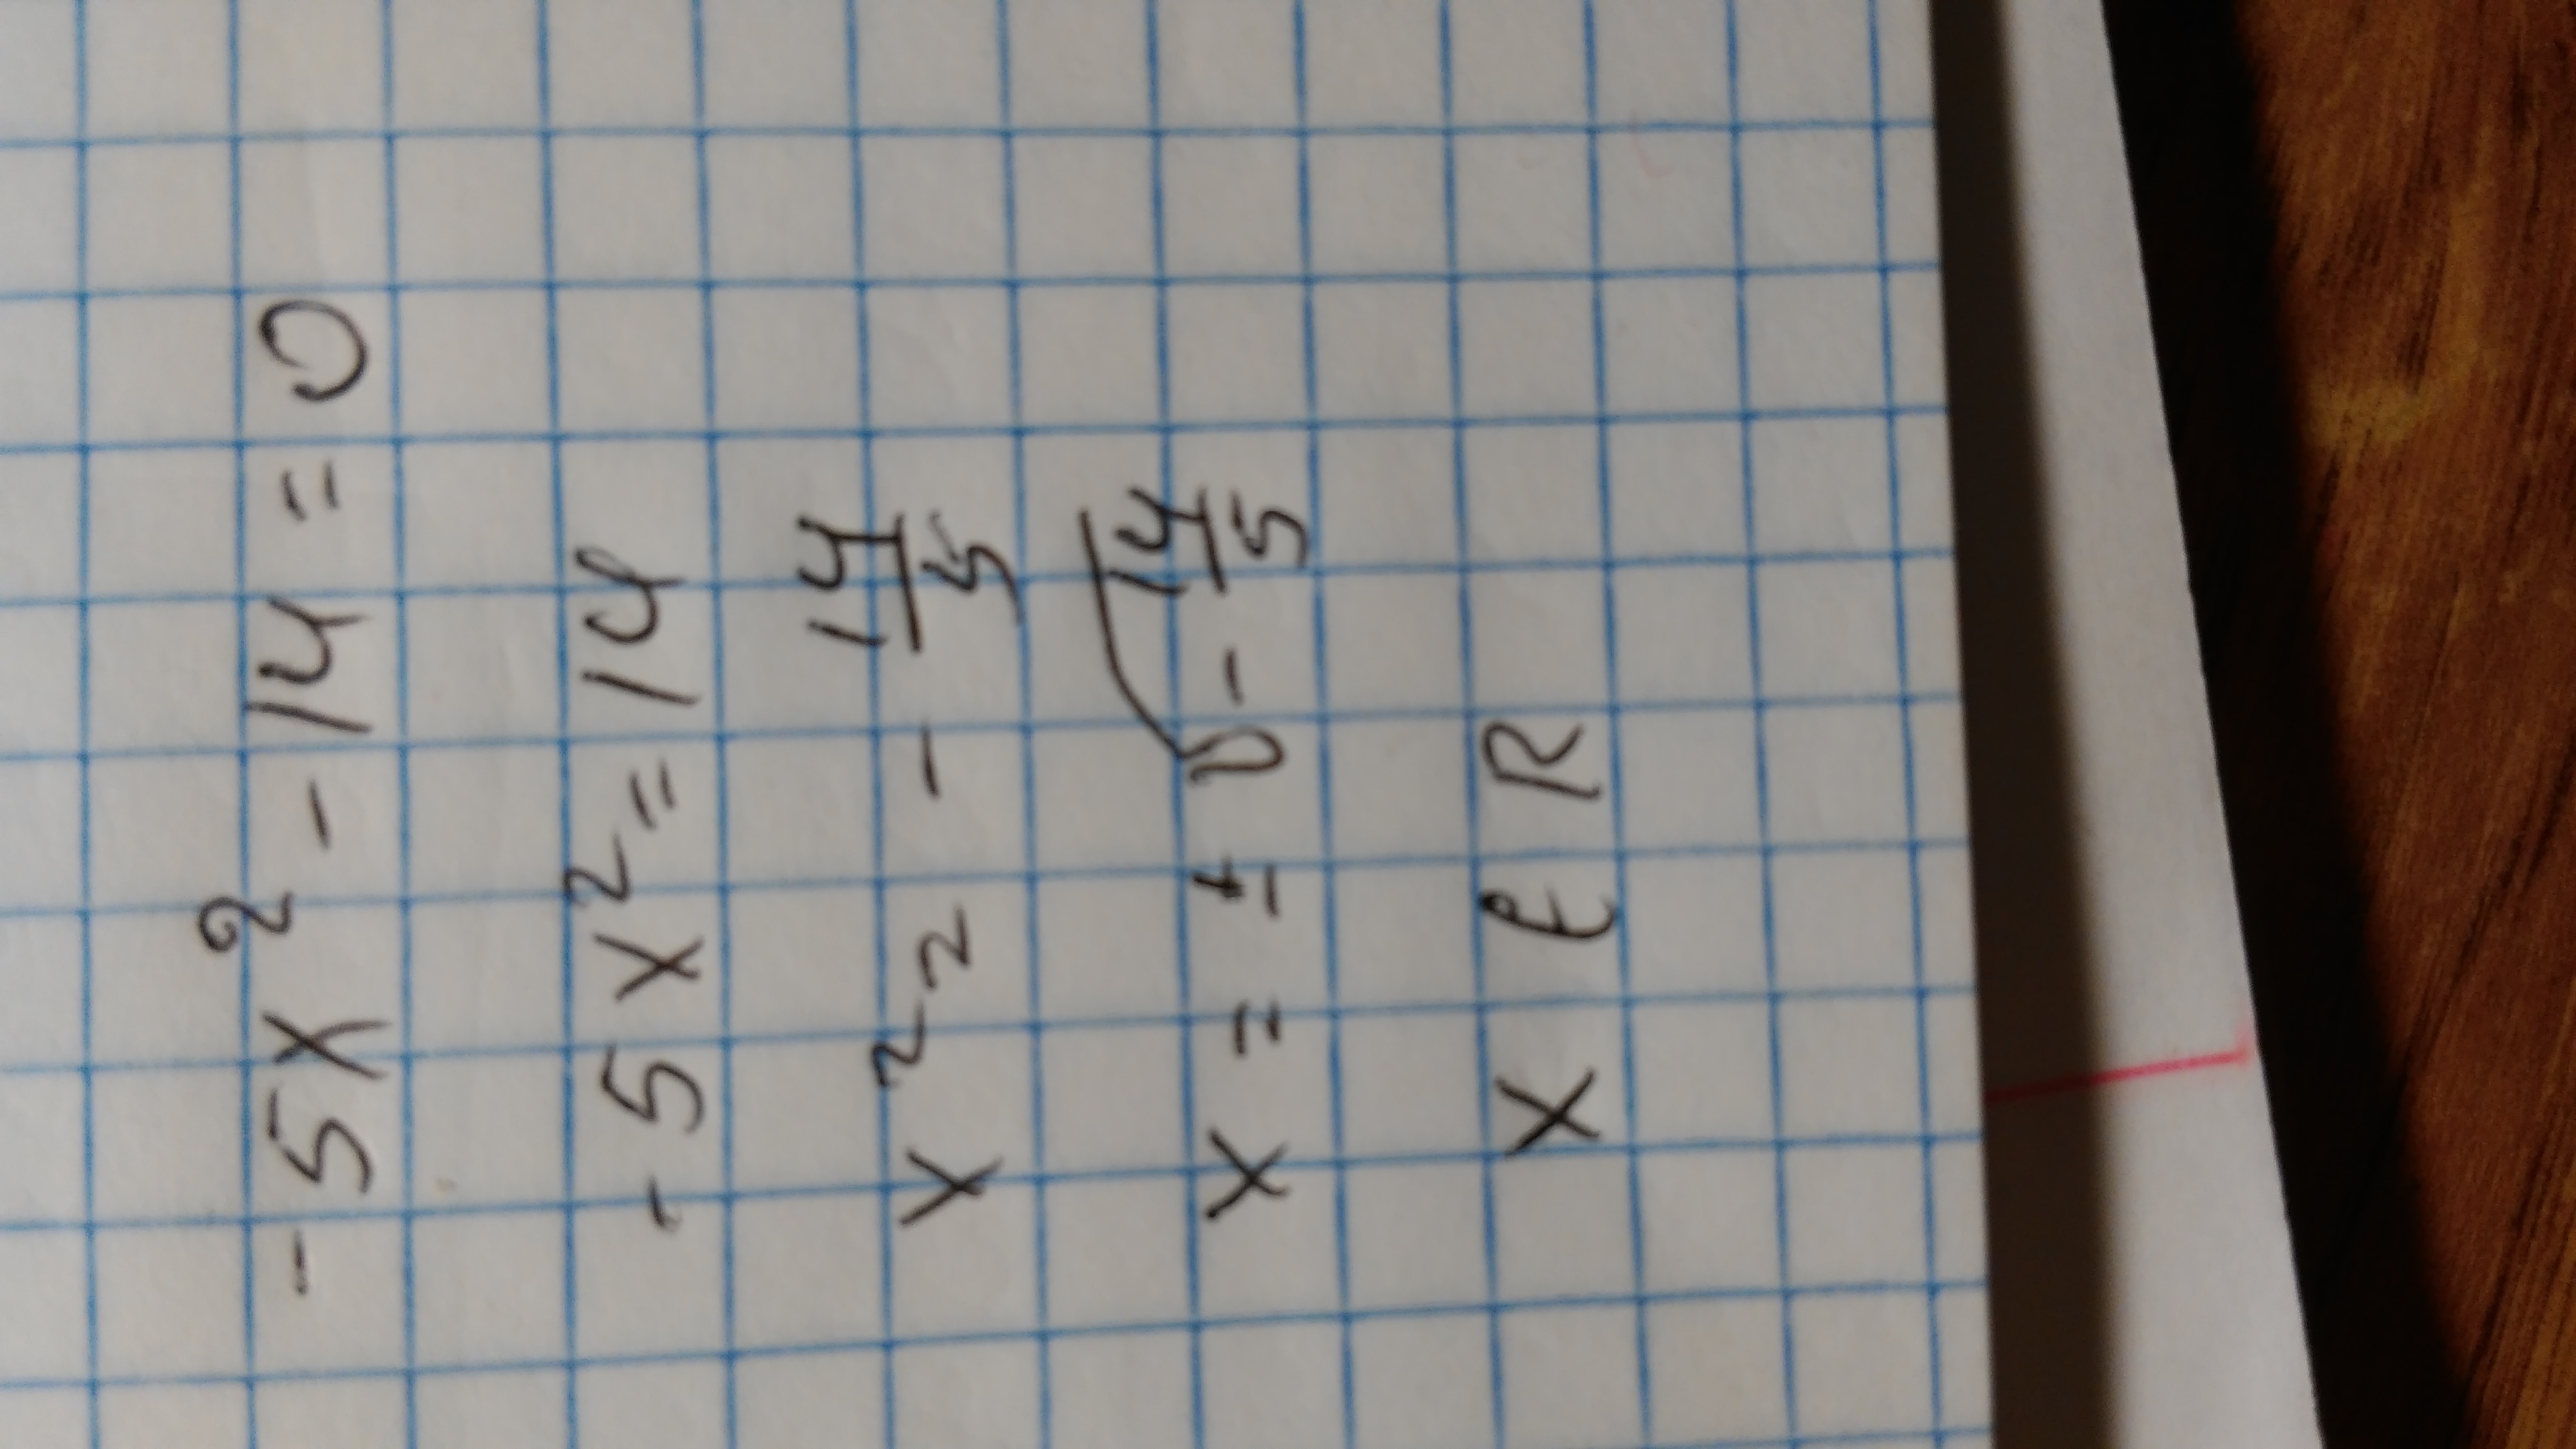 -5x² - 14 = 0
-5x² = 14
x² = - 14/5
x = ± √- 14/5
x ∈ R